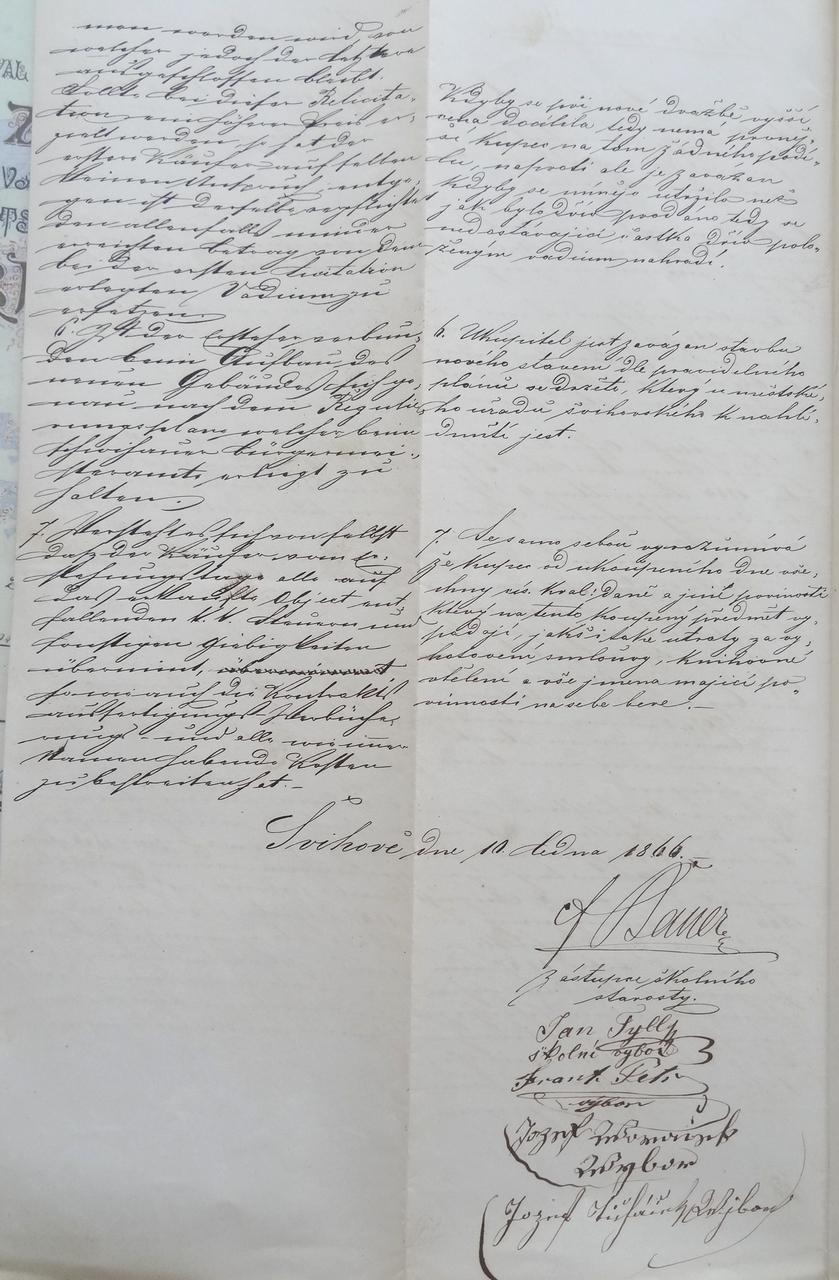 men worden wird, von
welcher jedoch der letztere
ausgeschlossen bleibt.
Sollte bei dieser Relicita-
tion ein höherer Preis er-
zielt werden, so hat der
erstere Käufer auf selben
keinen Anspruch, entge-
gen ist derselbe verpflichtet
den allenfalls minder
erreichten betrag von dem
bei der ersten Licitation
erlegten Vadium zu
ersetzen.
6. Ist der Ersteher verbun-
den beim Aufbau des
neuen Gebäudes sich ge-
nau nach dem Regulie-
rungsplane welcher beim
Schwihauer bürgermei-
steramte erliegt zu
halten.
7. Versteht es sich von selbst
daß der Käufer vom Er-
stehungstage alle auf
das erkaufte Object ent-
fallenden k. k. Steuern und
sonstigen Giebigkeiten
übernimt,
so wie auch die Kontrakts
ausfertigungs- Verbüche-
rungs- und alle wie immer
Namen habende Kosten
zu bestreiten hat.-
Kdyby se při nové dražbě vyšší
cena docílila tedy nemá prvněj-
ší kupec na tom žádného podí-
lu, naproti ale je zavázan
Kdyby se méněji utržilo než
jak bylo dřív prodáno tedy se
nedostávající částka dřív polo-
ženým vadium nahradí.
6. Ukupitel jest zavázan stavbu
nového stavení dle pravidelného
plánu se držeti, který u městské-
ho úřadu švihovského k nahlí-
dnutí jest.
7. Se samo sebou vyrozumívá
že kupec od ukoupeného dne vše-
chny cís. král: daně a jiné povinosti
který na tento koupený předmět vy-
padají, jakš i také útraty za vy-
hotovení smlouvy, knihovné
vtělení a vše jmena mající po-
vinnosti na sebe bere.-
Švihově dne 10. ledna 1866.
A Bauer
Zástupce školního
starosty.
Jan Tylly
školní výbor
Frant. Petr
výbor
Jozef
Wybor
Jozef Wýbor